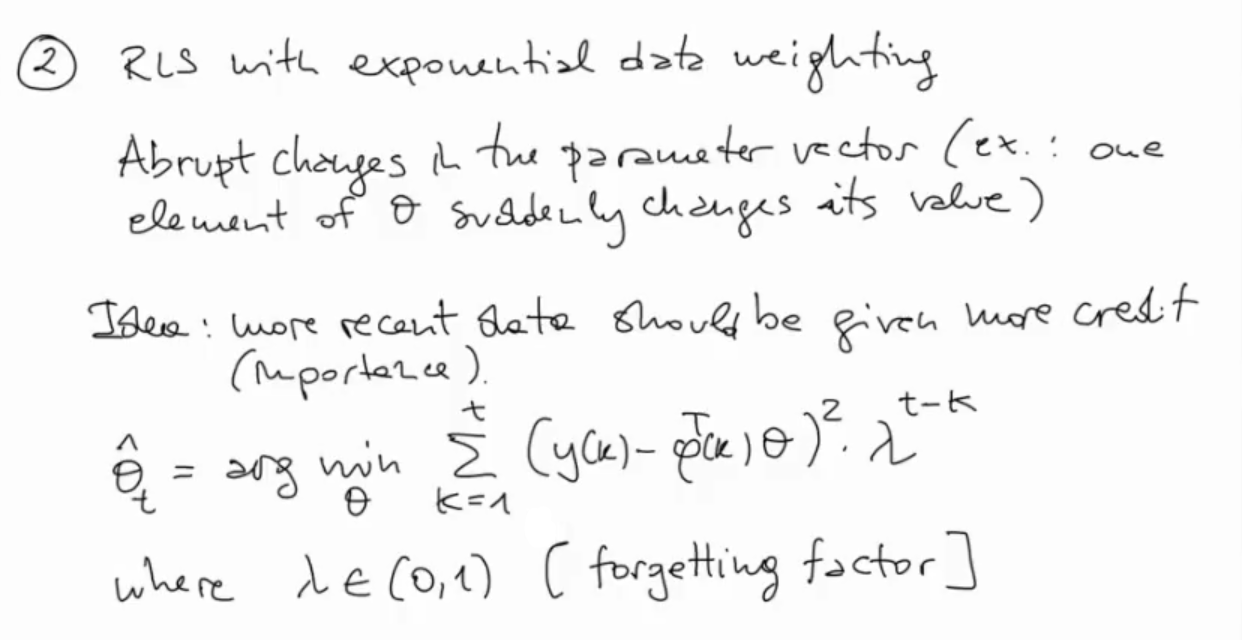 ② RLS with exponential data weighting
Abrupt changes in the parameter vector (ex.: one
element of θ suddenly changes its value)
Idea: more recent data should be given more credit
(importance).
θ̂_t = arg min_θ ∑_{k=1}^{t} (y(k) - φᵀ(k)θ)² · λ^{t-k}
where λ ∈ (0,1) [forgetting factor]